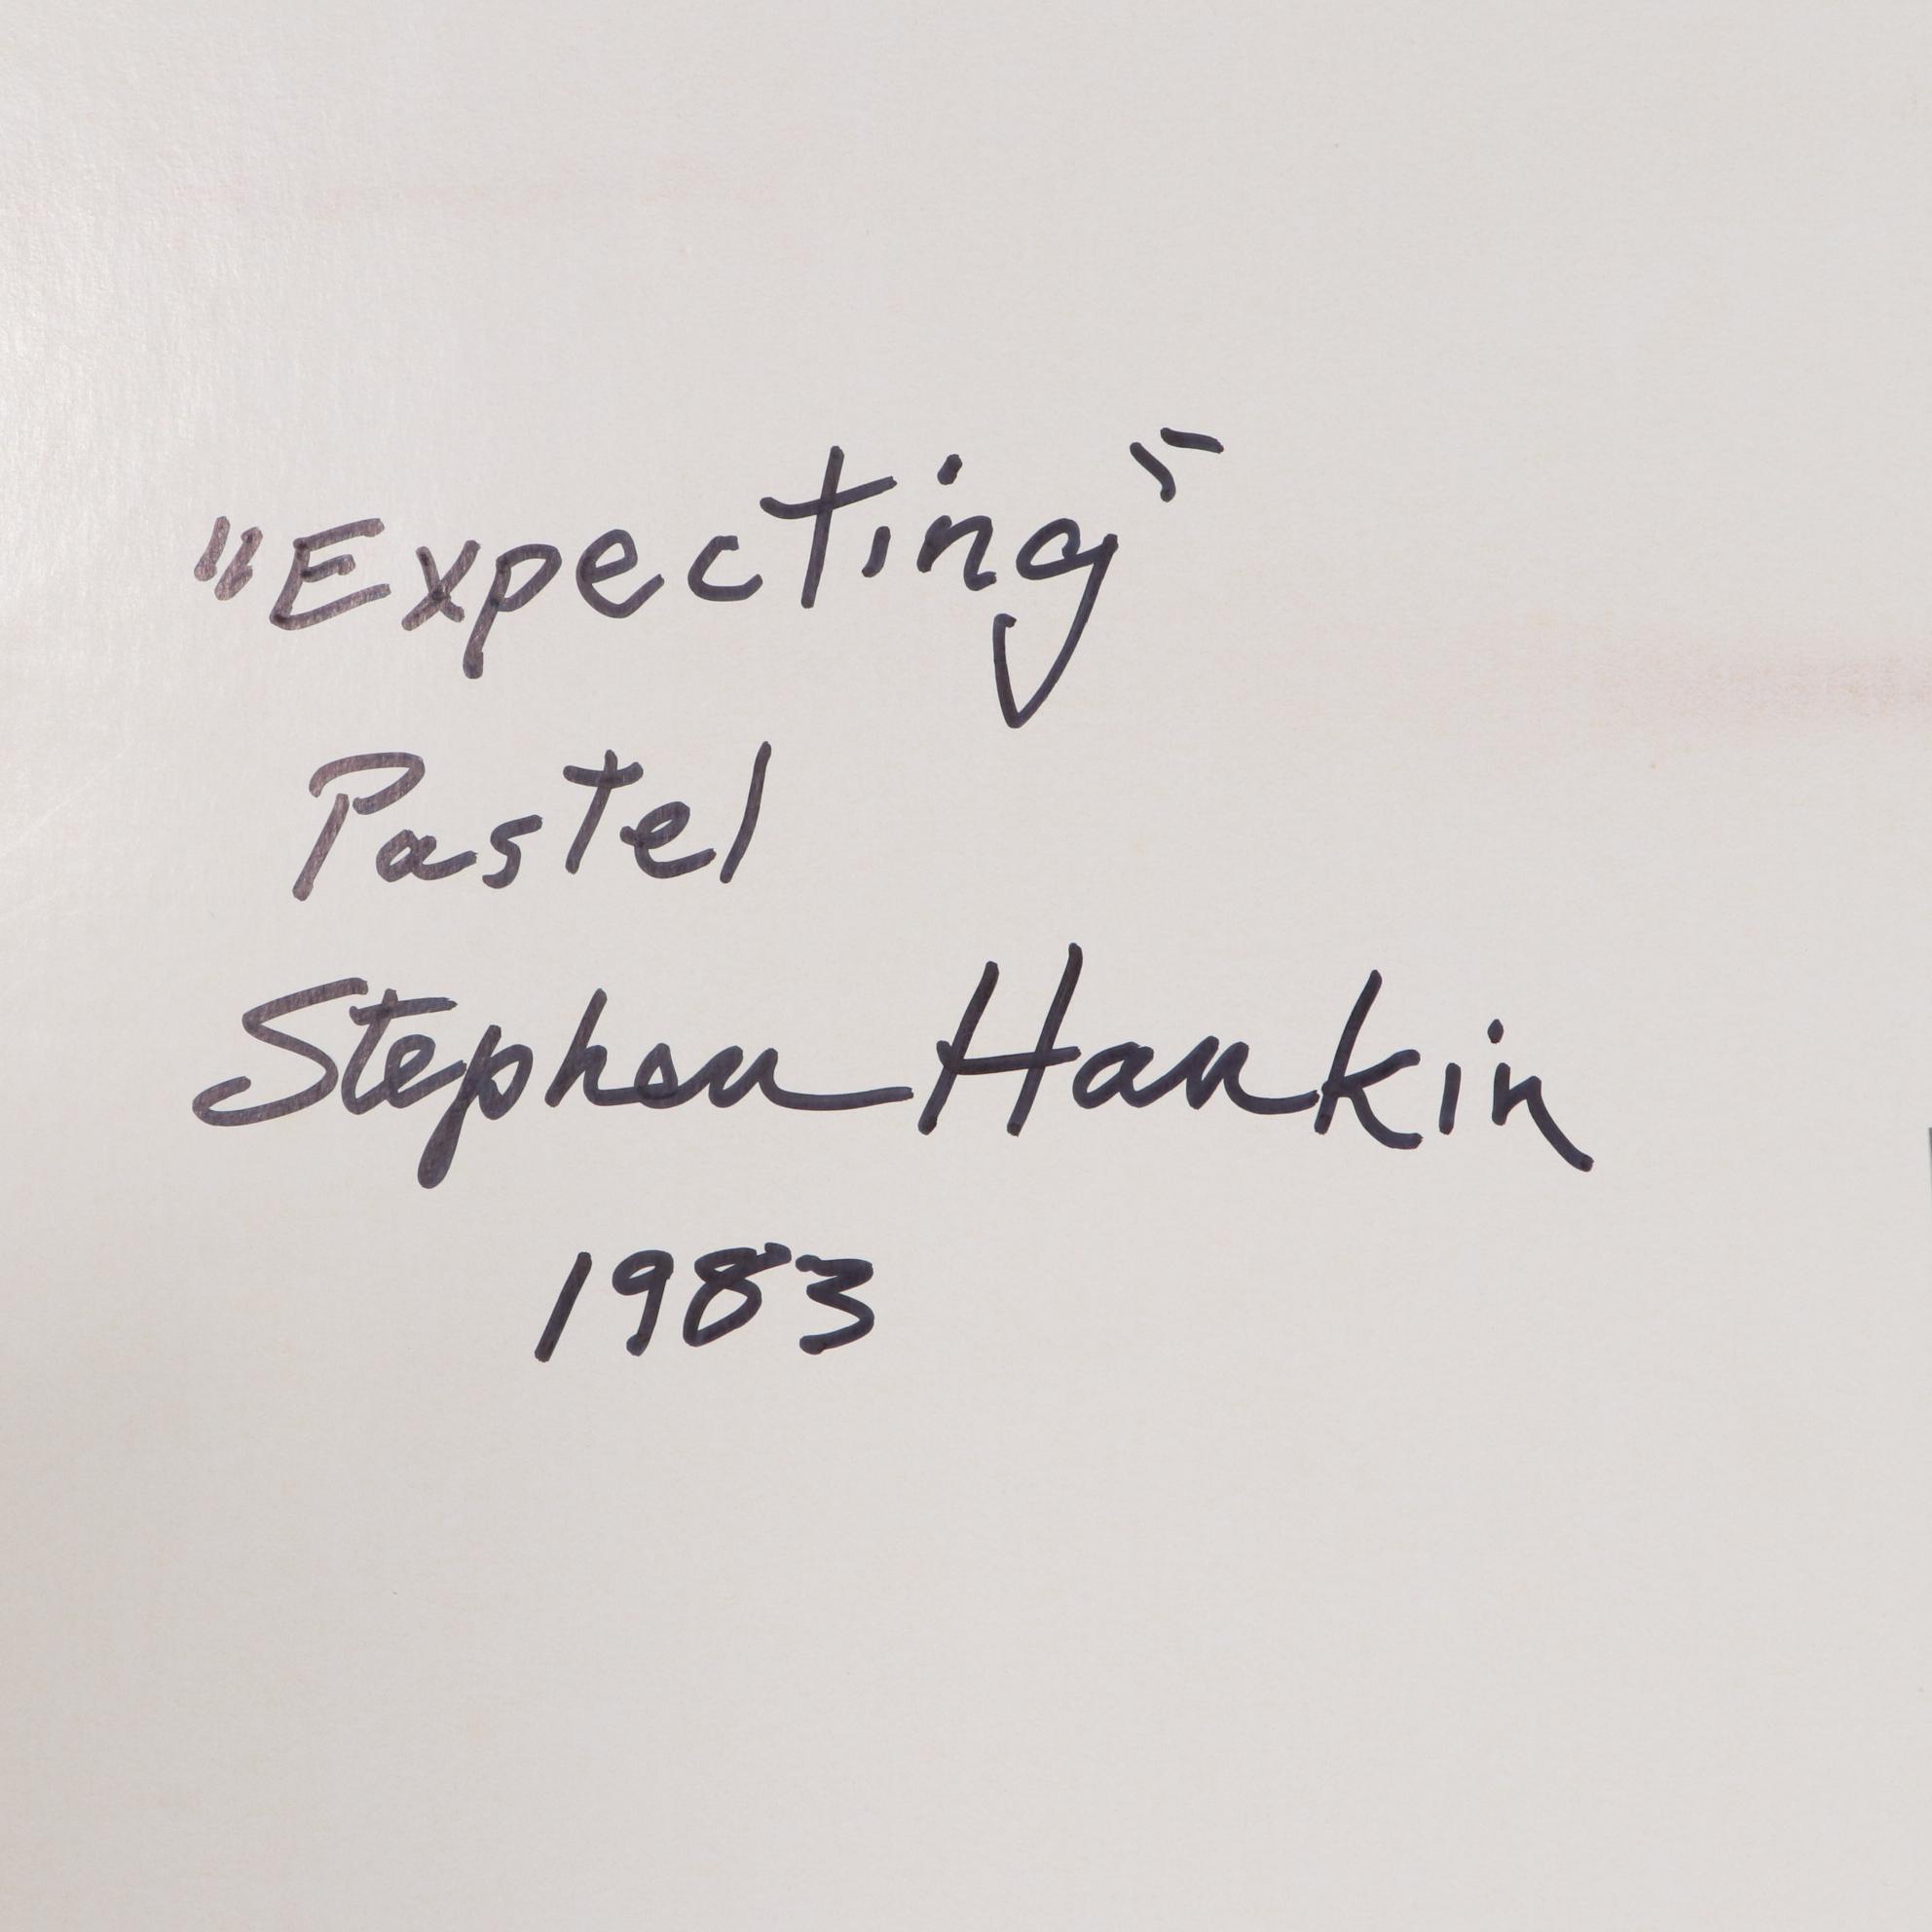 "Expecting"
Pastel
Stephen Hankin
1983